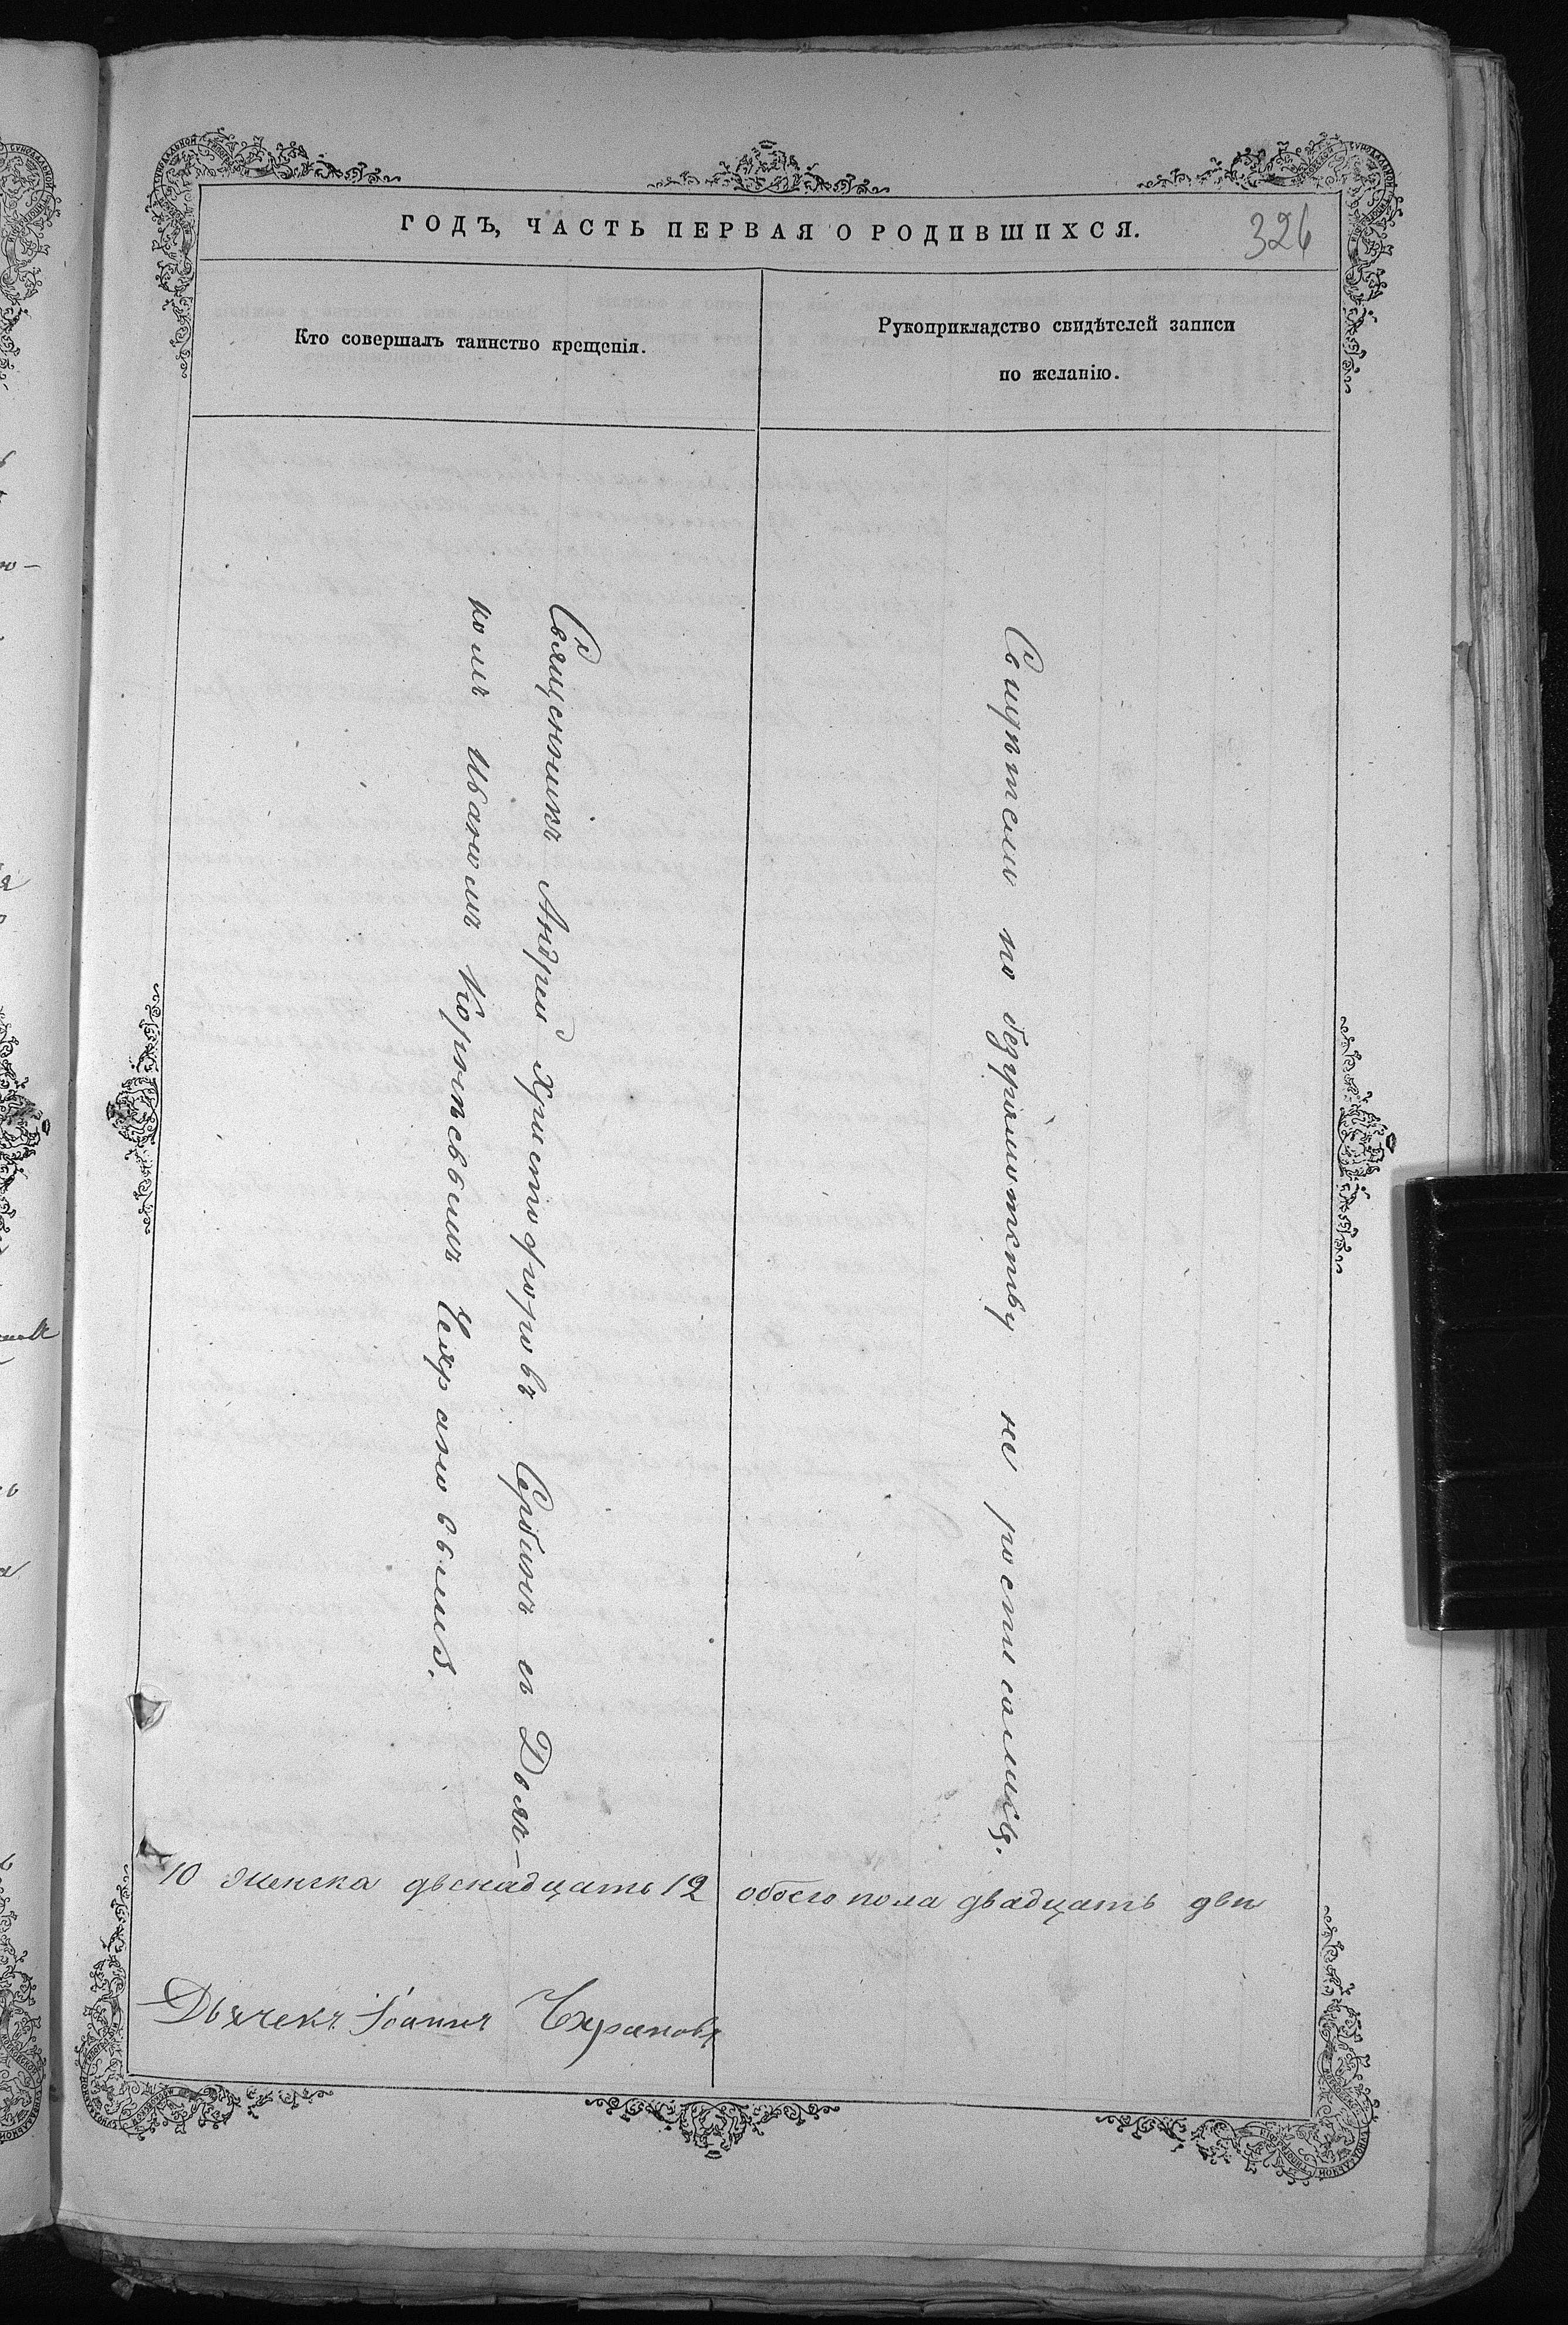 ГОДЪ, ЧАСТЬ ПЕРВАЯ О РОДИВШИХСЯ.
326
Кто совершалъ таинство крещенія.
Рукоприкладство свидѣтелей записи
по желанію.
Священникъ Андрей Христофоровъ Сербинъ съ Дьяч-
комъ Иваномъ Корнѣевымъ
по безграмотству не росписались.
10 женска двенадцать 12 обоего пола двадцать два
Дьячекъ Іоаннъ